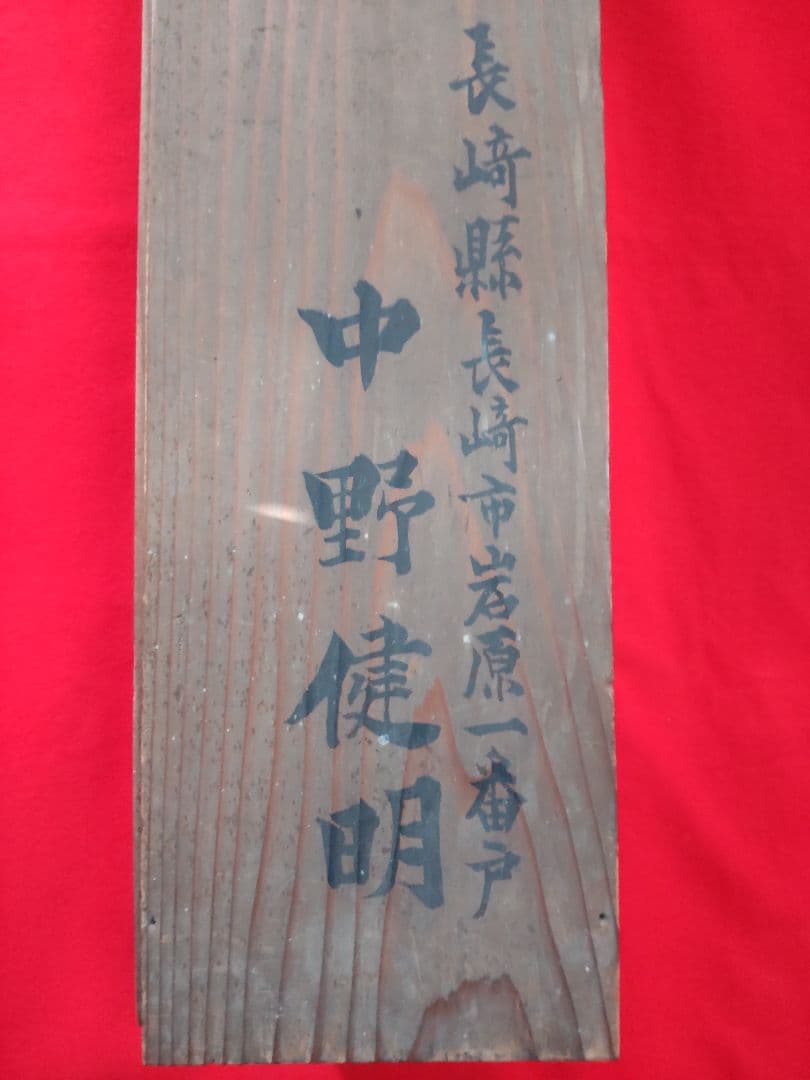 長﨑縣長﨑市岩原一番戸
中野健明